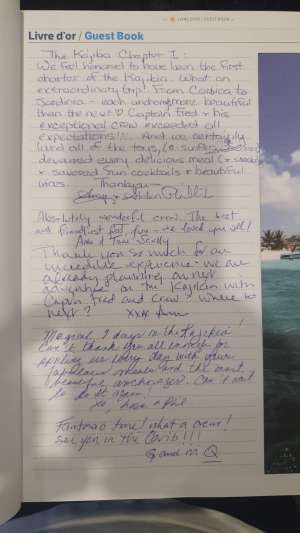 LIVRE D'OR / GUEST BOOK
Livre d'or / Guest Book
The Kajika Chapter I:
We feel honored to have been the first
charter of the Kajikia. What an
extraordinary trip! From Corsica to
Sardinia - each anchorage more beautiful
than the next ♡ Captain Fred + his
exceptional crew exceeded all
expectations!!! And we certainly
used all of the toys, (e-surf
devoured every delicious meal (+ snacks)
+ savored sun cocktails + beautiful
wines. Thankyou -
Absolutely wonderful crew. The best
and friendliest fat, fun - we love you all!
Ann & Tom Scully
Thank you so much for an
incredible experience. We are
already planning our next
adventure on the Kajikia with
Captn Fred and Crew - where to
next? xxx Ann
Magical 9 days on the Kajikia!
Can't thank you all enough for
spoiling us every day with your
fabulous meals and the most
beautiful anchorages. Can't wait
to do it again!
xo, & Phil
Fantastic time! What a crew!
See you in the Carib!!!
G and M Q